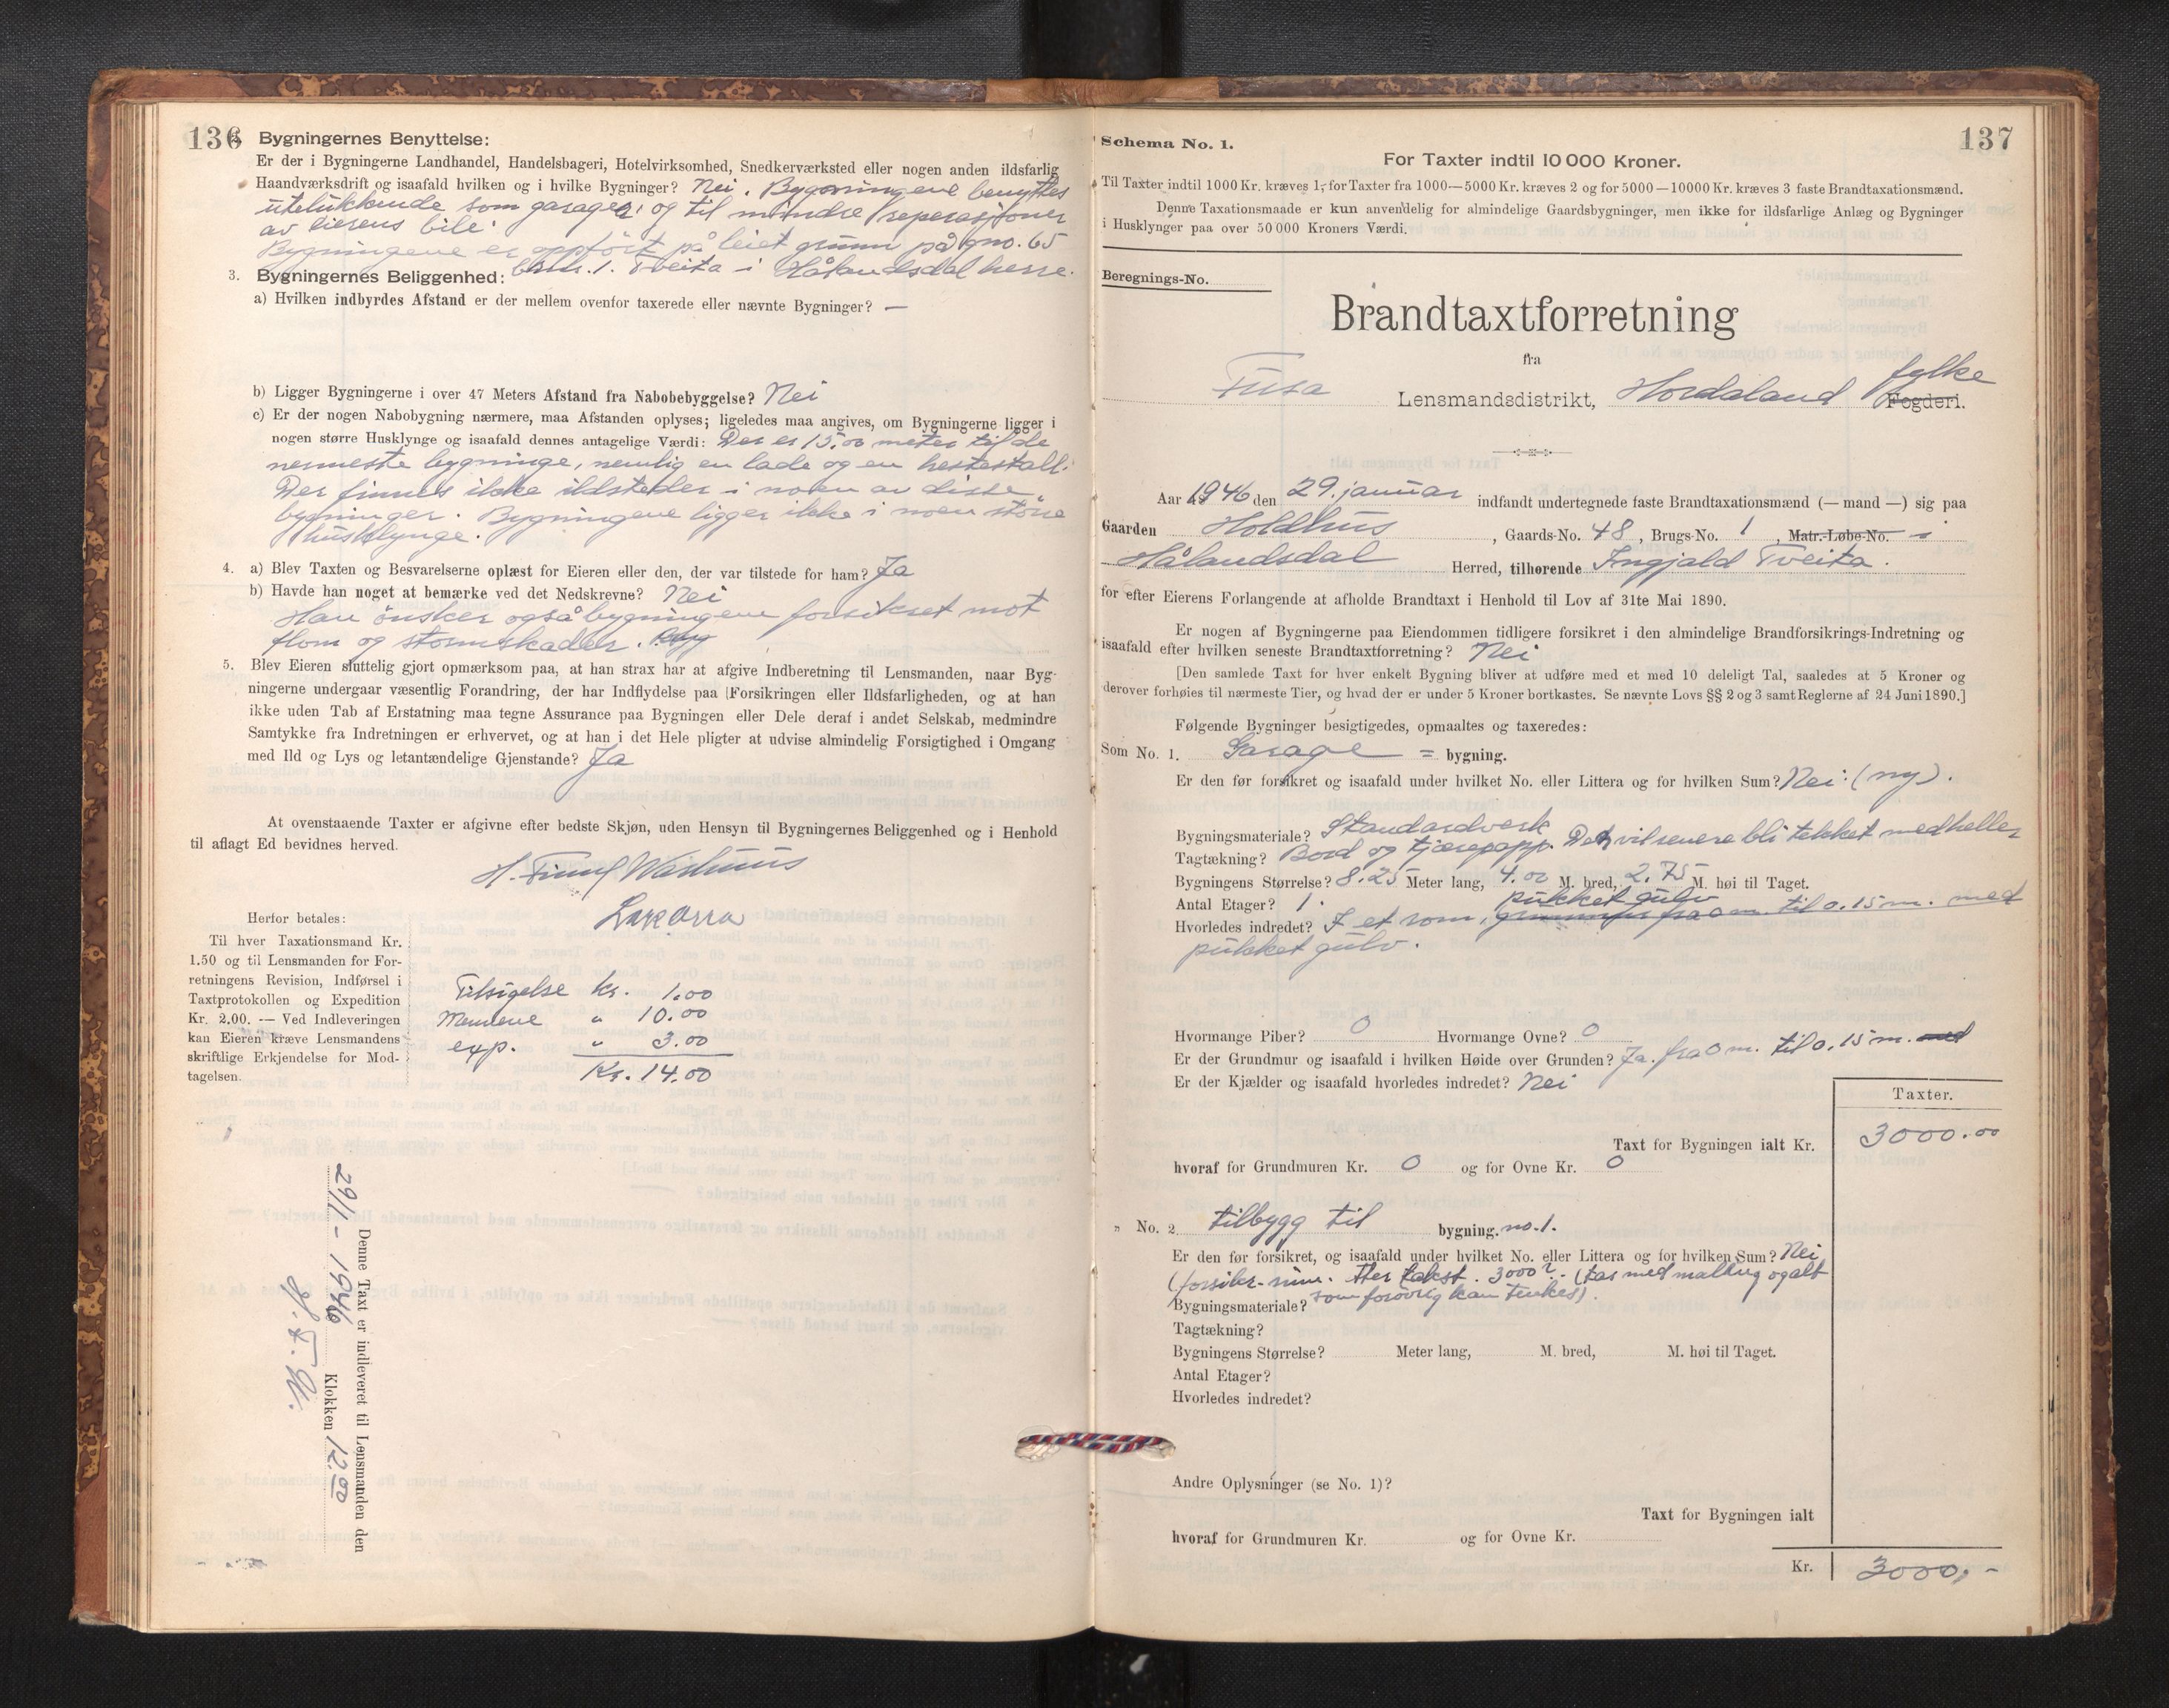 136
2. Bygningernes Benyttelse:
Er der i Bygningerne Landhandel, Handelsbageri, Hotelvirksomhed, Snedkerværksted eller nogen anden ildsfarlig
Haandværksdrift og isaafald hvilken og i hvilke Bygninger? Nei. Bygningene benyttes
utelukkende som garage, og til mindre reperasjoner
av eierens bil.
Bygningene er oppført på leiet grunn på gno. 65
3. Bygningernes Beliggenhed: bnr. 1. Tveita i Hålandsdal herre.
a) Hvilken indbyrdes Afstand er der mellem ovenfor taxerede eller nævnte Bygninger? —
b) Ligger Bygningerne i over 47 Meters Afstand fra Nabobebyggelse? Nei
c) Er der nogen Nabobygning nærmere, maa Afstanden oplyses; ligeledes maa angives, om Bygningerne ligger i
nogen større Husklynge og isaafald dennes antagelige Værdi: Der er 15.00 meter til de
nermeste bygninge, nemlig en lade og en hestestall.
Der finnes ikke ildsteder i noen av disse
bygninger. Bygningene ligger ikke i noen større
husklynge.
4. a) Blev Taxten og Besvarelserne oplæst for Eieren eller den, der var tilstede for ham? Ja
b) Havde han noget at bemærke ved det Nedskrevne? Nei
Han ønsker også bygningene forsikret mot
flom og stormskader.
5. Blev Eieren sluttelig gjort opmærksom paa, at han strax har at afgive Indberetning til Lensmanden, naar Byg-
ningerne undergaar væsentlig Forandring, der har Indflydelse paa Forsikringen eller Ildsfarligheden, og at han
ikke uden Tab af Erstatning maa tegne Assurance paa Bygningen eller Dele deraf i andet Selskab, medmindre
Samtykke fra Indretningen er erhvervet, og at han i det Hele pligter at udvise almindelig Forsigtighed i Omgang
med Ild og Lys og letantændelige Gjenstande? Ja
At ovenstaaende Taxter er afgivne efter bedste Skjøn, uden Hensyn til Bygningernes Beliggenhed og i Henhold
til aflagt Ed bevidnes herved.
Herfor betales:
Til hver Taxationsmand Kr.
1.50 og til Lensmanden for For-
retningens Revision, Indførsel i
Taxtprotokollen og Expedition
Kr. 2.00. — Ved Indleveringen
kan Eieren kræve Lensmandens
skriftlige Erkjendelse for Mod-
tagelsen.
Tilsigelse kr. 1.00
Mennene " 10.00
exp. " 3.00
Kr. 14.00
Denne Taxt er indleveret til Lensmanden den
29/1 - 1946 Klokken 12.00
137
Schema No. 1.
For Taxter indtil 10 000 Kroner.
Til Taxter indtil 1000 Kr. kræves 1, for Taxter fra 1000—5000 Kr. kræves 2 og for 5000—10000 Kr. kræves 3 faste Brandtaxationsmænd.
Denne Taxationsmaade er kun anvendelig for almindelige Gaardsbygninger, men ikke for ildsfarlige Anlæg og Bygninger
i Husklynger paa over 50 000 Kroners Værdi.
Beregnings-No.
Brandtaxtforretning
fra
Fusa Lensmandsdistrikt, Hordaland fylke Fogderi.
Aar 1946 den 29. januar indfandt undertegnede faste Brandtaxationsmænd (— mand —) sig paa
Gaarden Holdhus, Gaards-No. 48, Brugs-No. 1, Matr.-Løbe-No. — i
Hålandsdal Herred, tilhørende Ingjald Tveita.
for efter Eierens Forlangende at afholde Brandtaxt i Henhold til Lov af 31te Mai 1890.
Er nogen af Bygningerne paa Eiendommen tidligere forsikret i den almindelige Brandforsikrings-Indretning og
isaafald efter hvilken seneste Brandtaxtforretning? Nei
[Den samlede Taxt for hver enkelt Bygning bliver at udføre med et med 10 deleligt Tal, saaledes at 5 Kroner og
derover forhøies til nærmeste Tier, og hvad der er under 5 Kroner bortkastes. Se nævnte Lovs §§ 2 og 3 samt Reglerne af 24 Juni 1890.]
Følgende Bygninger besigtigedes, opmaaltes og taxeredes:
Som No. 1. Garage = bygning.
Er den før forsikret og isaafald under hvilket No. eller Littera og for hvilken Sum? Nei (ny).
Bygningsmateriale? Standardverk
Tagtækning? Bord og tjærepapp. Den vil senere bli tekket med heller
Bygningens Størrelse? 8.25 Meter lang, 4.00 M. bred, 2.75 M. høi til Taget.
Antal Etager? 1. pukket gulv
Hvorledes indredet? I et rom, grunnmur fra 0 m. til 0.15 m. med
pukket gulv.
Hvormange Piber? 0 Hvormange Ovne? 0
Er der Grundmur og isaafald i hvilken Høide over Grunden? Ja. fra 0 m. til 0.15 m. med
Er der Kjælder og isaafald hvorledes indredet? Nei
Taxter.
Taxt for Bygningen ialt Kr. 3000.00
hvoraf for Grundmuren Kr. 0 og for Ovne Kr. 0
" No. 2 tilbygg til bygning. no. 1.
Er den før forsikret, og isaafald under hvilket No. eller Littera og for hvilken Sum? Nei
takst. 3000 (tas med maling og alt
Bygningsmateriale? som forøvrig kan tenkes).
Tagtækning?
Bygningens Størrelse? Meter lang, M. bred, M. høi til Taget.
Antal Etager?
Hvorledes indredet?
Andre Oplysninger (se No. 1)?
Taxt for Bygningen ialt
hvoraf for Grundmuren Kr. og for Ovne Kr.
Kr. 3000,-